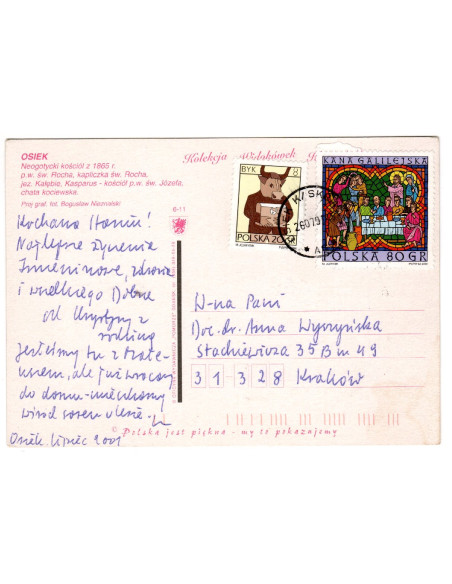 OSIEK
Neogotycki kościół z 1865 r.
p.w. św. Rocha, kapliczka św. Rocha,
jez. Kałębie, Kasparus - kościół p.w. św. Józefa,
chata kociewska.
Proj graf. fot. Bogusław Niezwalski
6-11
Kolekcja Widokówek
BYK
POLSKA 20 GR
KANA GALILEJSKA
POLSKA 80 GR
Kochana Haniu!
Najlepsze życzenia
Imieninowe, zdrowia
i wszelkiego Dobra
od Krystyny z
rodziną
Jesteśmy tu z
ale już wracamy
do domu
Osiek lipiec 2001
W-na Pani
Doc. dr. Anna Wyrzyńska
Stachiewicza 35 B m 49
31-328 Kraków
© Polska jest piękna - my to pokazujemy